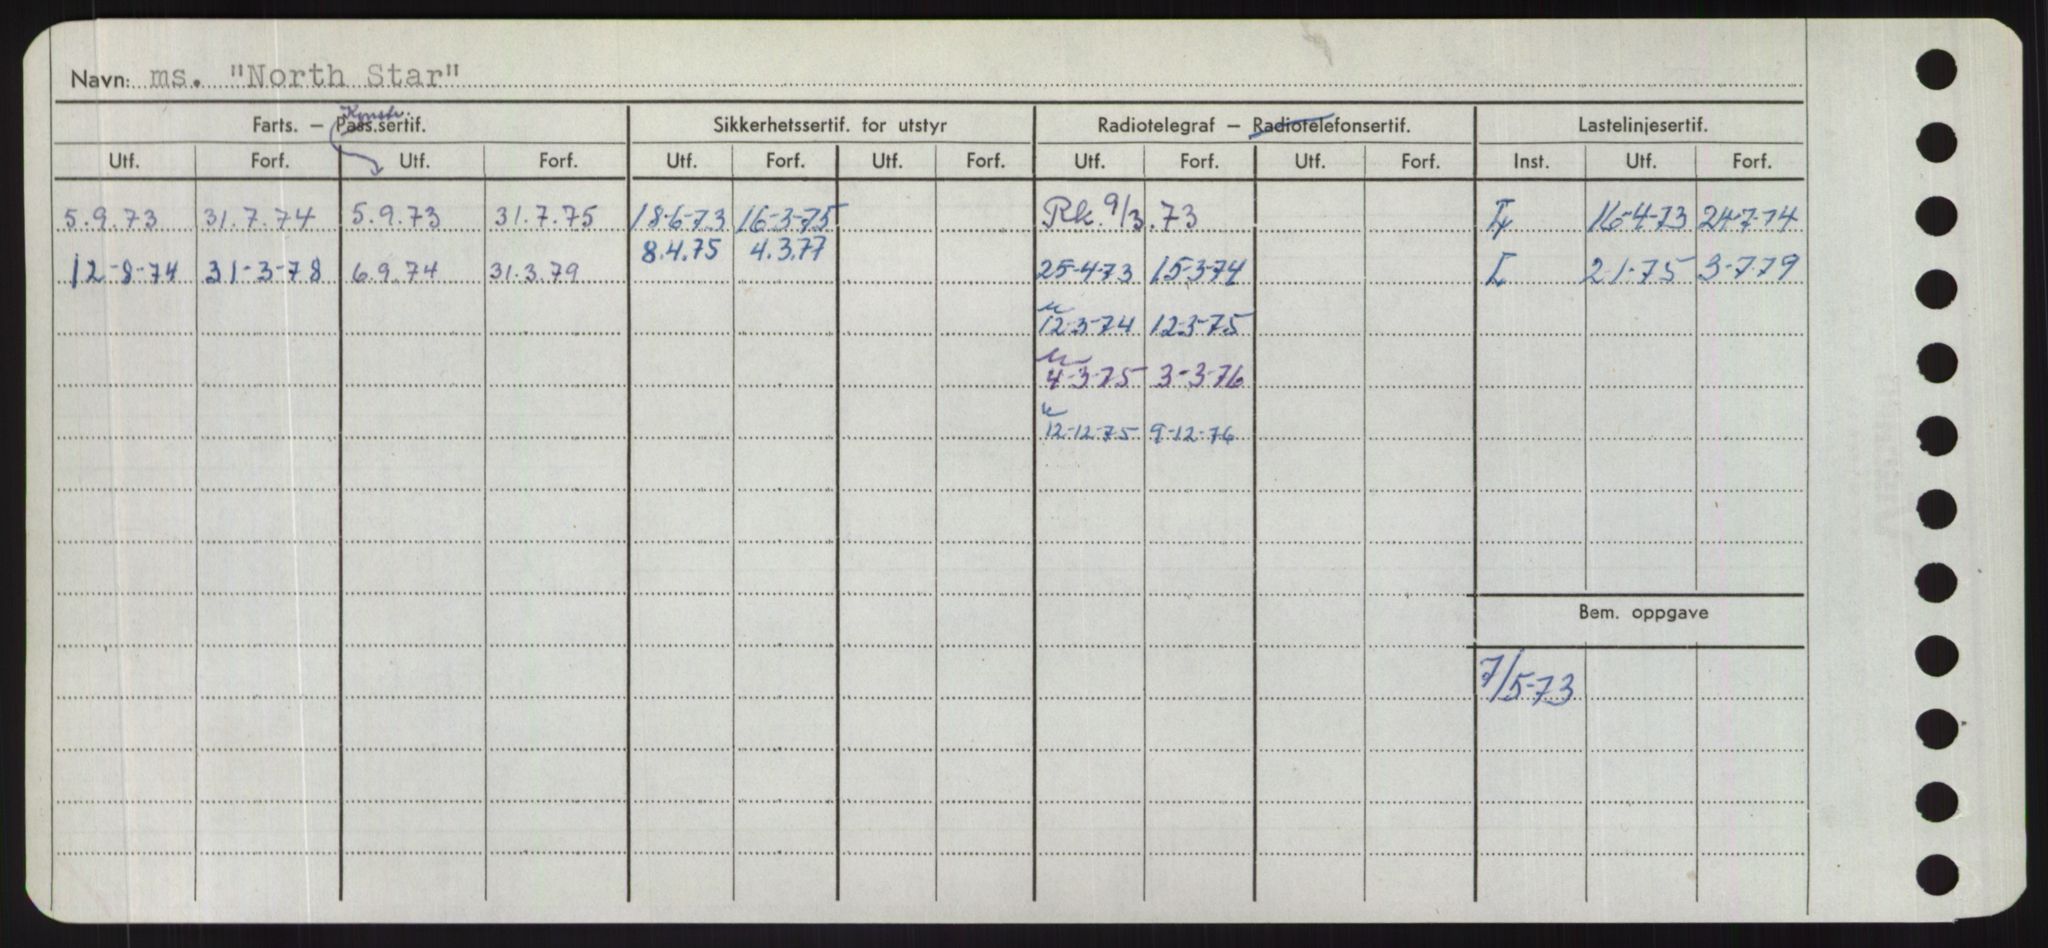 Navn: ms. "North Star"
Konstr.
Farts. — Pass.sertif. Sikkerhetssertif. for utstyr Radiotelegraf — Radiotelefonsertif. Lastelinjesertif.
Utf. Forf. Utf. Forf. Utf. Forf. Utf. Forf. Utf. Forf. Utf. Forf. Inst. Utf. Forf.
5.9.73 31.7.74 5.9.73 31.7.75 18-6-73 16-3-75 Rk. 9/3.73 16-4-73 24-7-74
8.4.75 4.3.77
12-8-74 31-3-78 6.9.74 31.3.79 25-4-73 15-3-74 2-1-75 3-7-79
12-3-74 12-3-75
4-3-75 3-3-76
12-12-75 9-12-76
Bem. oppgave
7/5-73